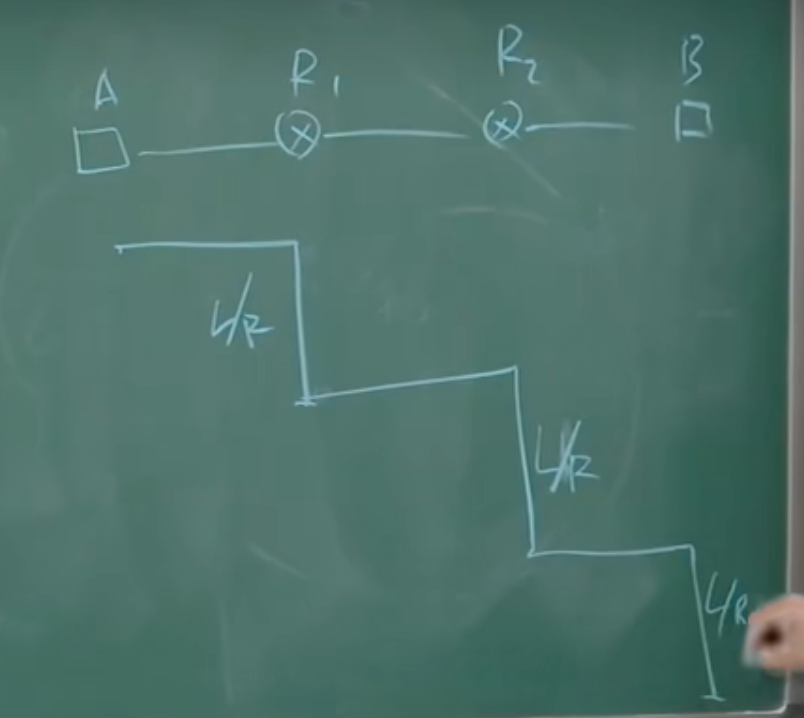 A R₁ R₂ B
L/R
L/R
L/R